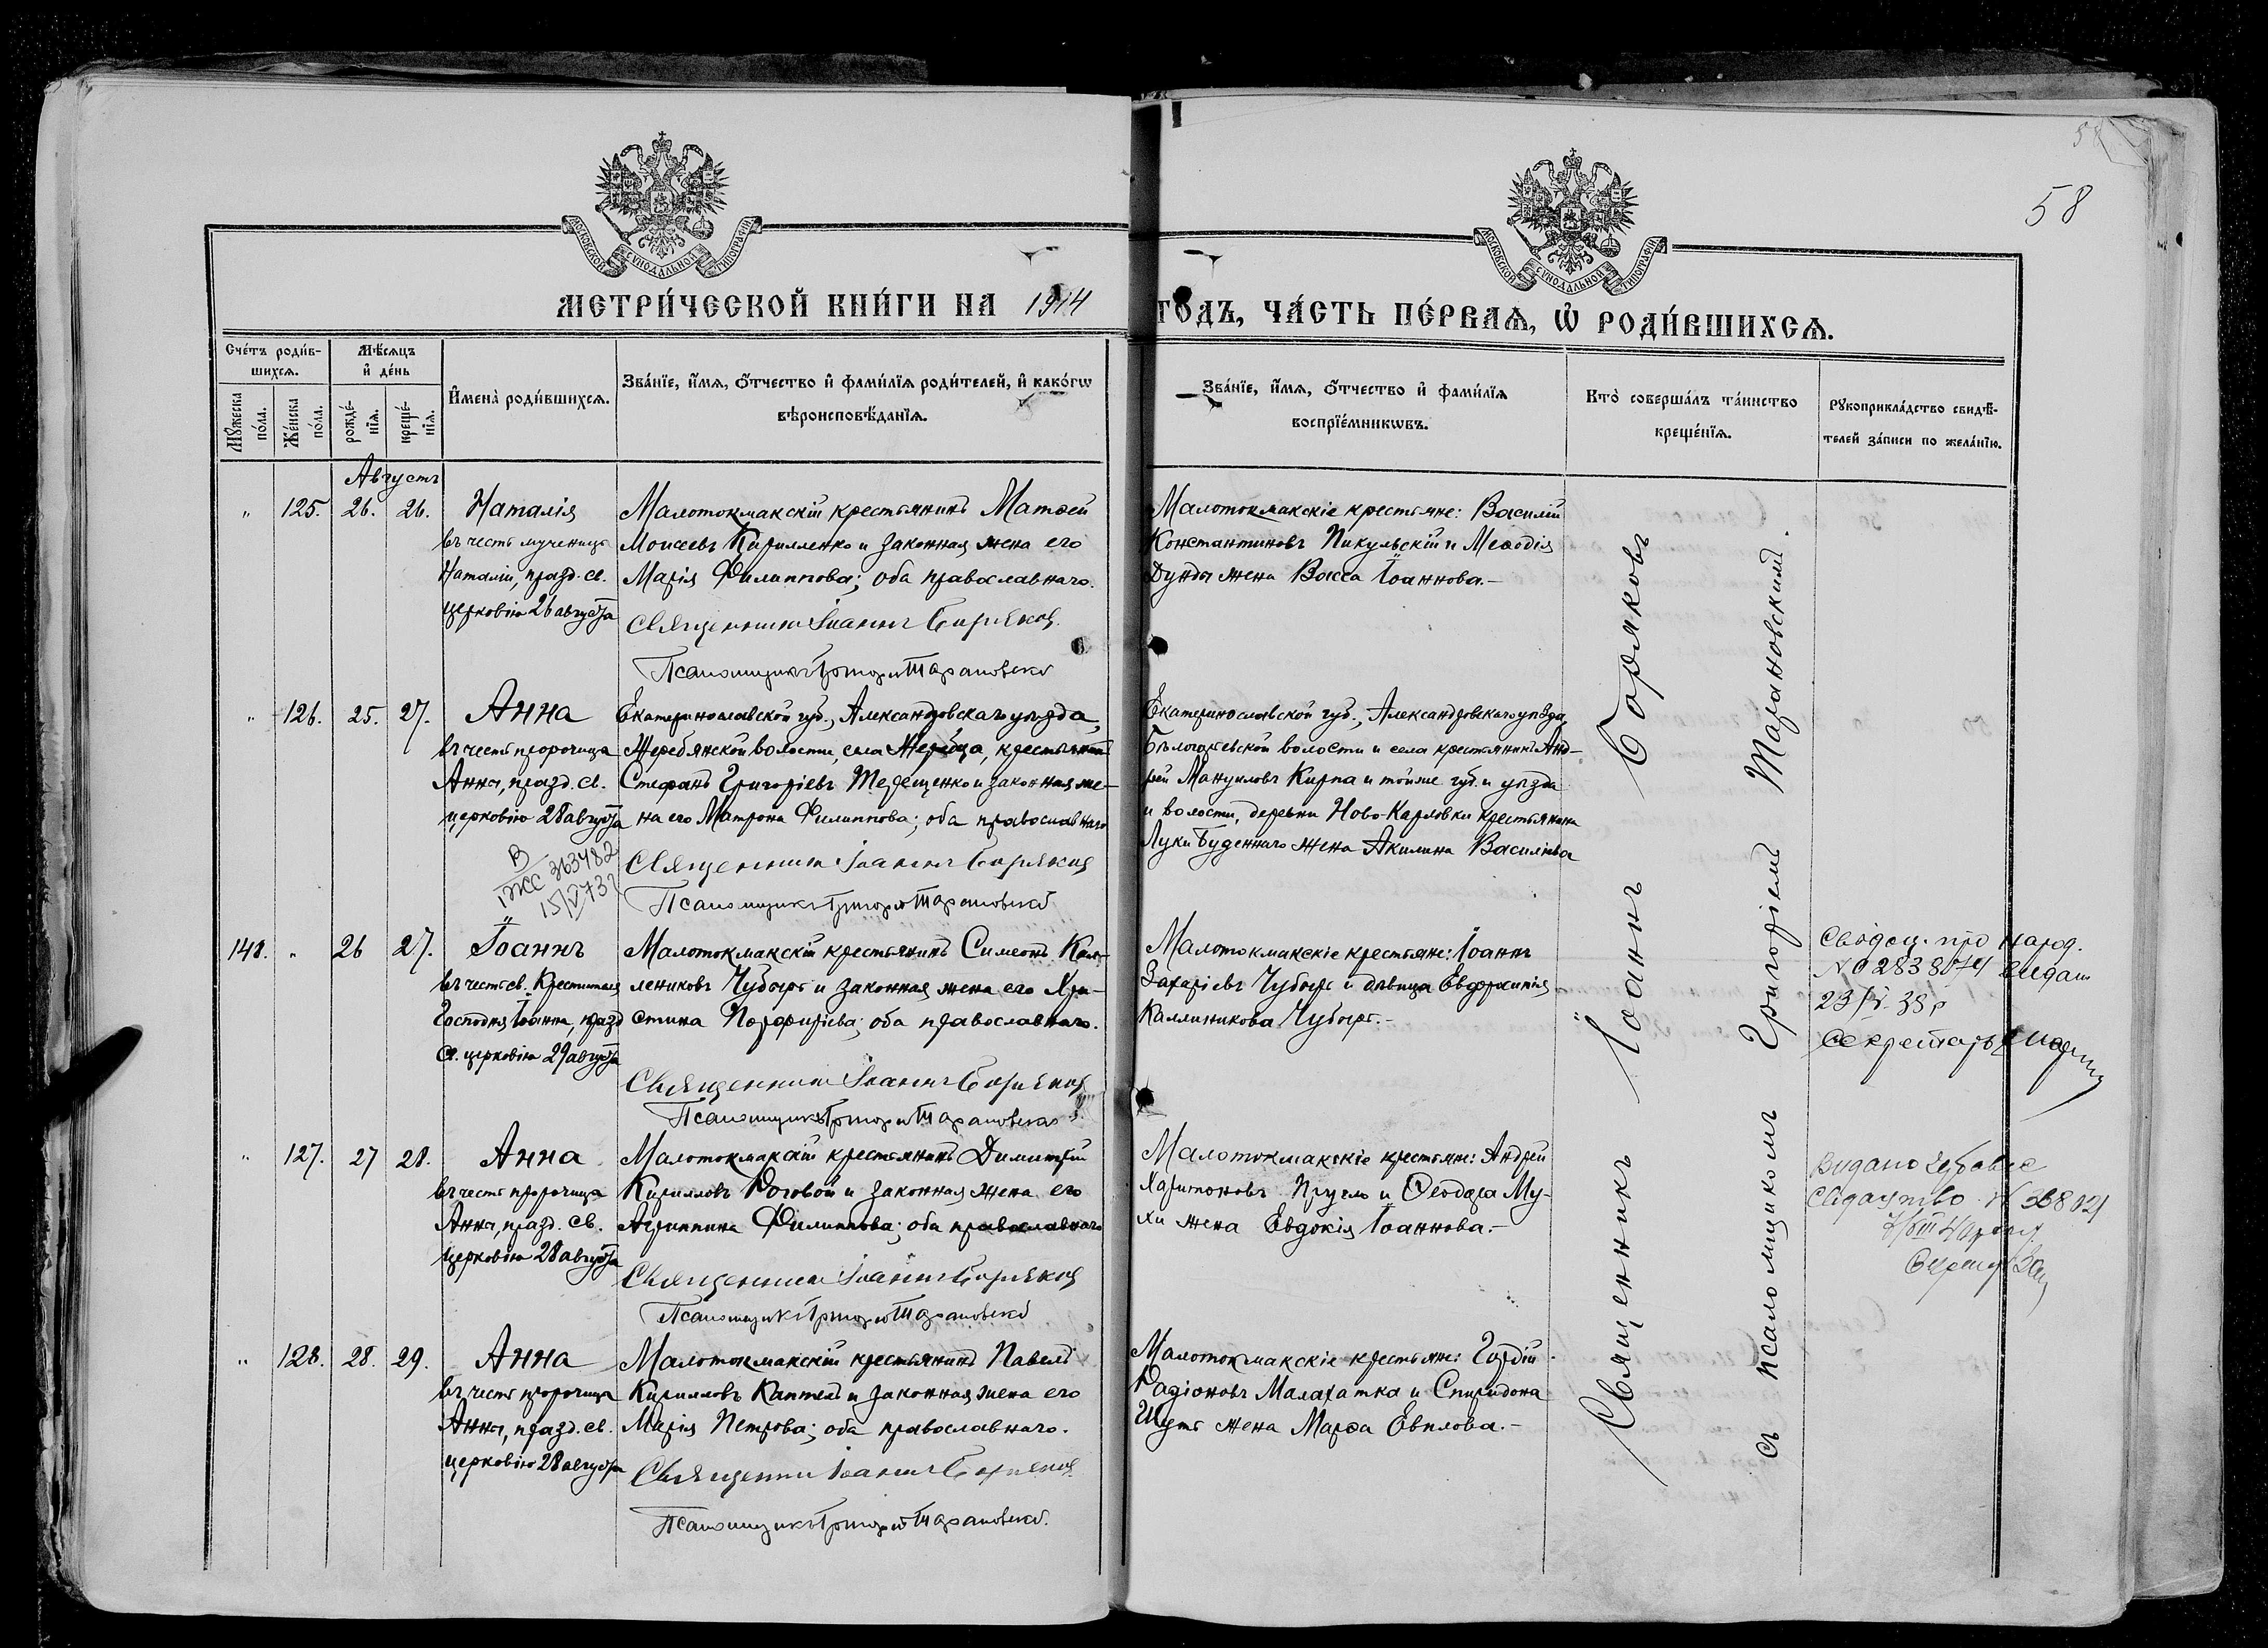 58
МОСКОВСКОЙ СѴНОДАЛЬНОЙ ТИПОГРАФІИ
МОСКОВСКОЙ СѴНОДАЛЬНОЙ ТИПОГРАФІИ
МЕТРИ́ЧЕСКОЙ КНИ́ГИ НА 1914 ГОДЪ, ЧА́СТЬ ПЕ́РВАѦ, Ѡ РОДИ́ВШИХСѦ.
Сче́тъ роди́в-
шихсѧ.
Мѣ́сѧцъ
и҆ де́нь
Мꙋ́жеска
по́ла.
Же́нска
по́ла.
рожде́-
нїѧ.
креще́-
нїѧ.
И҆мена̀ роди́вшихсѧ.
Зва́нїе, и҆́мѧ, о҆́тчество и҆ фами́лїѧ роди́телей, и҆ како́гѡ
вѣроисповѣ́данїѧ.
Зва́нїе, и҆́мѧ, о҆́тчество и҆ фами́лїѧ
воспрїе́мникѡвъ.
Кто̀ соверша́лъ та́инство
креще́нїѧ.
Рꙋкоприкла́дство свидѣ́-
телей за́писи по жела́нїю.
Августъ
" 125. 26. 26.
Наталія
въ честь мученицы
Наталіи, празд. св.
церковію 26 августа
Малотокмакскій крестьянинъ Матѳей
Моисеевъ Кирилленко и законная жена его
Марія Филиппова; оба православнаго.
Священникъ Іоаннъ Боряковъ
Псаломщикъ Григорій Тарановскій
Малотокмакскіе крестьяне: Василій
Константиновъ Пикульскій и Меѳодія
Дунды жена Васса Іоаннова.–
" 126. 25. 27.
Анна
въ честь пророчицы
Анны, празд. св.
церковію 28 августа
В
ІЖС 363482
Екатеринославской губ., Александровскаго уѣзда,
Жеребянской волости, села Жеребца, крестьянинъ
Стефанъ Григоріевъ Терещенко и законная же-
на его Матрона Филиппова; оба православнаго
Священникъ Іоаннъ Боряковъ
Псаломщикъ Григорій Тарановскій
Екатеринославской губ., Александровскаго уѣзда,
волости и села крестьянинъ Анд-
рей Мануиловъ Кирпа и той же губ. и уѣзда
и волости, деревни Ново-Карловки крестьянина
Луки Буденнаго жена Акилина Васильева
148. " 26 27.
Іоаннъ
въ честь св. Крестителя
Господня Іоанна, празд
св. церковію 29 августа
Малотокмакскій крестьянинъ Симеонъ Кал-
лениковъ Чубырь и законная жена его Хри-
стина Порфиріева; оба православнаго.
Священникъ Іоаннъ Боряковъ
Псаломщикъ Григорій Тарановскій
Малотокмакскіе крестьяне: Іоаннъ
Захаріевъ Чубырь и дѣвица Евдоркинія
Каллиникова Чубырь.–
Свідоц. про народ.
№ 0283874 видан
Секретарь
" 127. 27 28.
Анна
въ честь пророчицы
Анны, празд. св.
церковію 28 августа
Малотокмакскій крестьянинъ Димитрій
Кирилловъ Роговой и законная жена его
Агриппина Филиппова; оба православнаго
Священникъ Іоаннъ Боряковъ
Псаломщикъ Григорій Тарановскій
Малотокмакскіе крестьяне: Андрей
Харитоновъ Пругло и Ѳеодора Му-
хи жена Евдокія Іоаннова.–
Видано
" 128. 28. 29.
Анна
въ честь пророчицы
Анны, празд. св.
церковію 28 августа
Малотокмакскій крестьянинъ Павелъ
Кирилловъ Каптелъ и законная жена его
Марія Петрова; оба православнаго.
Священникъ Іоаннъ Боряковъ
Псаломщикъ Григорій Тарановскій.
Малотокмакскіе крестьяне: Гордій
Радіоновъ Малахатка и Спиридона
Шуть жена Марѳа Евплова.–
Священникъ Іоаннъ Боряковъ
съ псаломщикомъ Григоріемъ Тарановскимъ.